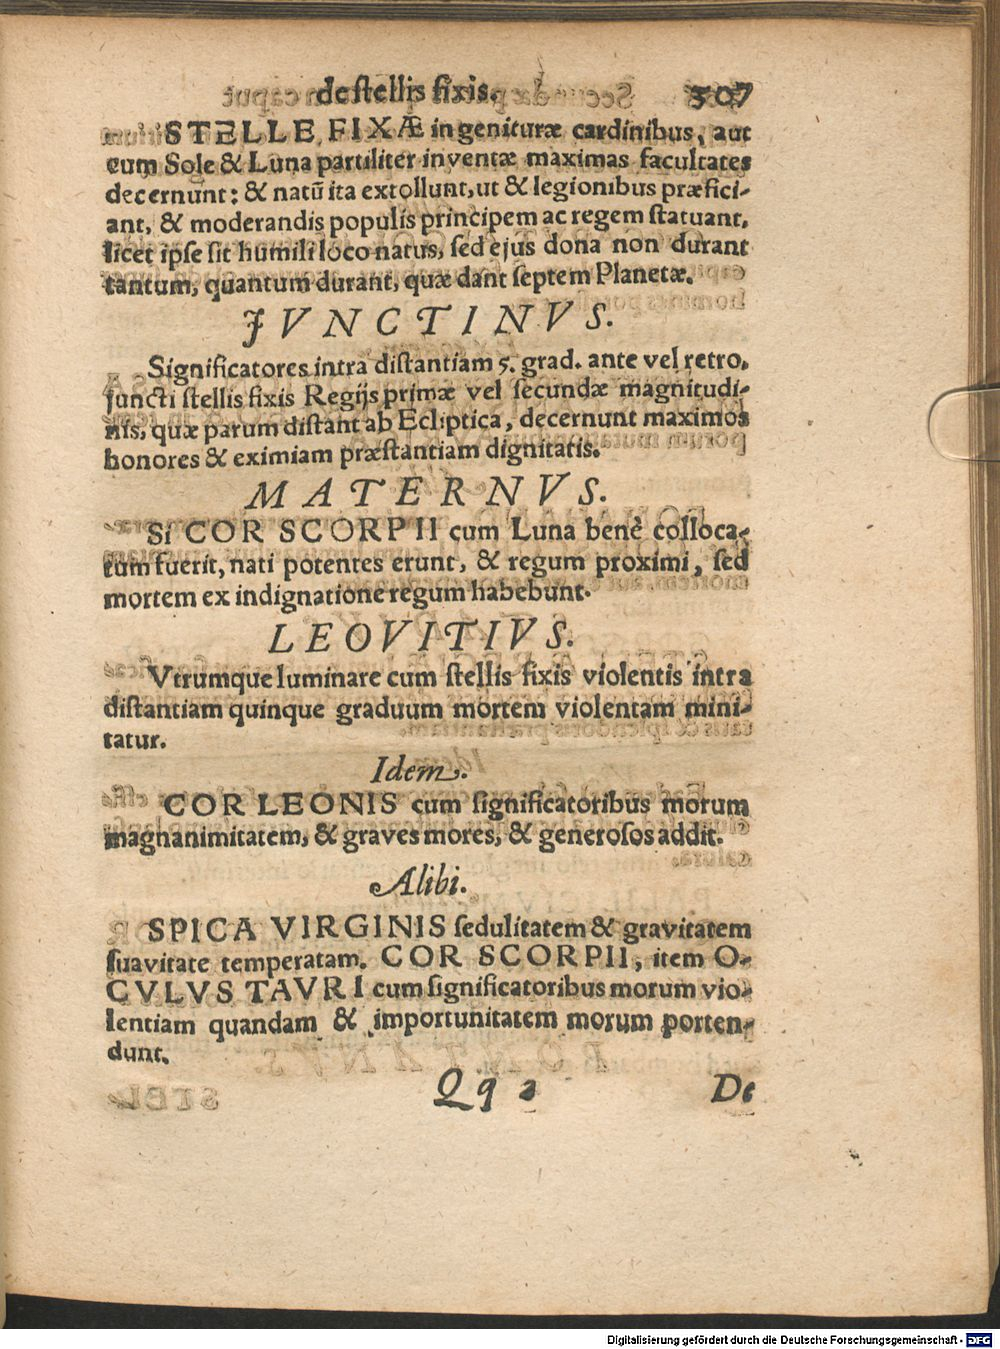 de stellis fixis. 507
STELLE FIXÆ in genituræ cardinibus, aut
cum Sole & Luna partiliter inventæ maximas facultates
decernunt: & natū ita extollunt, ut & legionibus præfici-
ant, & moderandis populis principem ac regem statuant,
licet ipse sit humili loco natus, sed ejus dona non durant
tantum, quantum durant, quæ dant septem Planetæ.
JVNCTINVS.
Significatores intra distantiam 5. grad. ante vel retro,
juncti stellis fixis Regijs primæ vel secundæ magnitudi-
nis, quæ parum distant ab Ecliptica, decernunt maximos
honores & eximiam præstantiam dignitatis.
MATERNVS.
Si COR SCORPII cum Luna benè colloca-
tum fuerit, nati potentes erunt, & regum proximi, sed
mortem ex indignatione regum habebunt.
LEOVITIVS.
Vtrumque luminare cum stellis fixis violentis intra
distantiam quinque graduum mortem violentam mini-
tatur.
Idem.
COR LEONIS cum significatoribus morum
magnanimitatem, & graves mores, & generosos addit.
Alibi.
SPICA VIRGINIS sedulitatem & gravitatem
suavitate temperatam. COR SCORPII, item O-
CVLVS TAVRI cum significatoribus morum vio-
lentiam quandam & importunitatem morum porten-
dunt.
Qq 2 De
Digitalisierung gefördert durch die Deutsche Forschungsgemeinschaft - DFG